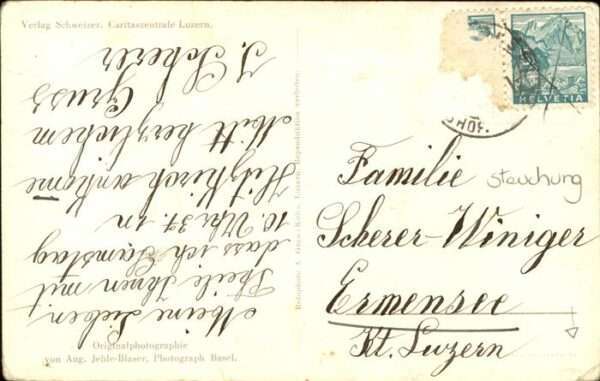 Verlag Schweizer. Caritaszentrale Luzern.
Meine Lieben!
Theile Ihnen mit
dass ich Samstag
10. Uhr 37. in
Hitzkirch ankome
Mitt herzlichem
Gruss
J. Scherer
Originalphotographie
von Aug. Jehle-Blaser, Photograph Basel.
Reproduktion verboten.
HELVETIA
Familie
Scherer-Winiger
Ermensee
Kt. Luzern